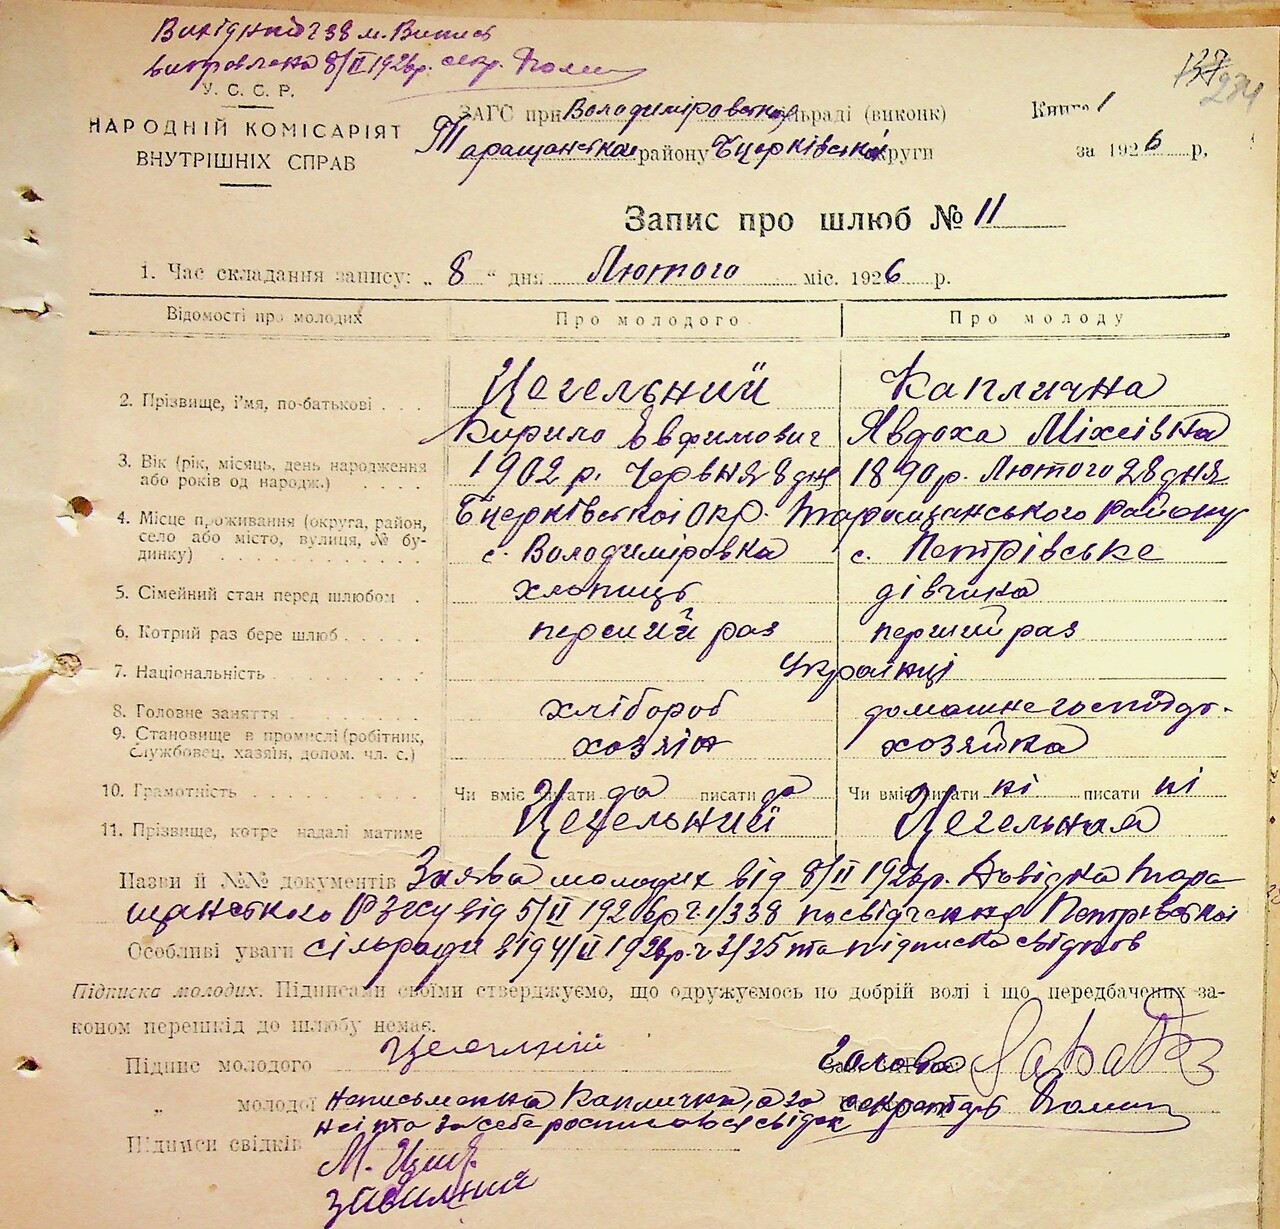 137
234
У. С. С. Р.
НАРОДНІЙ КОМІСАРІЯТ
ВНУТРІШНІХ СПРАВ
ЗАГС при Володиміровській сільраді (виконк)
Таращанського району Бцерківської округи
Книга 1
за 1926 р,
Запис про шлюб № 11
1. Час складання запису: „ 8 “ дня Лютого міс. 1926 р.
Відомості про молодих
Про молодого
Про молоду
2. Прізвище, і'мя, по-батькові . . .
Цегельний
Кирило Євфимович
Каплична
Явдоха Міхеівна
3. Вік (рік, місяць, день народження
або років од народж.)
1902 р. Червня 8 дня
1890 р. Лютого 28 дня
4. Місце проживання (округа, район,
село або місто, вулиця, № бу-
динку)
Бцерківської Окр. Таращанського району
с. Володиміровка
с. Петрівське
5. Сімейний стан перед шлюбом .
хлопиць
дівчина
6. Котрий раз бере шлюб . . . . .
перший раз
перший раз
7. Національність
Українці
8. Головне заняття
хлібороб
домашнє господр.
9. Становище в промислі (робітник,
службовец, хазяїн, допом. чл. с.)
хозяін
хозяйка
10. Грамотність
Чи вміє читати да писати да
Чи вміє читати ні писати ні
11. Прізвище, котре надалі матиме
Цегельний
Цегельная
Назви й №№ документів Заява молодих від 8/II 1926р. Довідка Тара
щанського РЗАГСу від 5/II 1926р ч 1/338 посвідчення Петрівської
Особливі уваги сільради від 4/II 1926р. ч 3/35 та підписка свідков
Підписка молодих. Підписами своїми стверджуємо, що одружуємось по добрій волі і що передбачених за-
коном перешкід до шлюбу немає.
Підпис молодого Цегелний
Голова
„ молодої Неписьменна Каплична, а за
секретарь
неі та за себе росписався свідок
Підписи свідків
М.